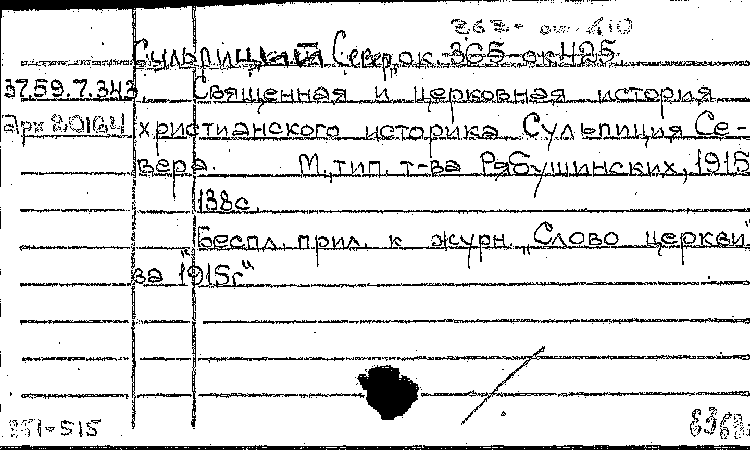 363- ок. 410
Сульпиций Север, ок 365-ок 425.
37.59.7.343. Священная и церковная история
Арх 20164 христианского историка Сульпиция Се-
вера. М., тип. т-ва Рябушинских, 1915
138с.
Беспл. прил. к журн. „Слово церкви"
за 1915г"
351-515